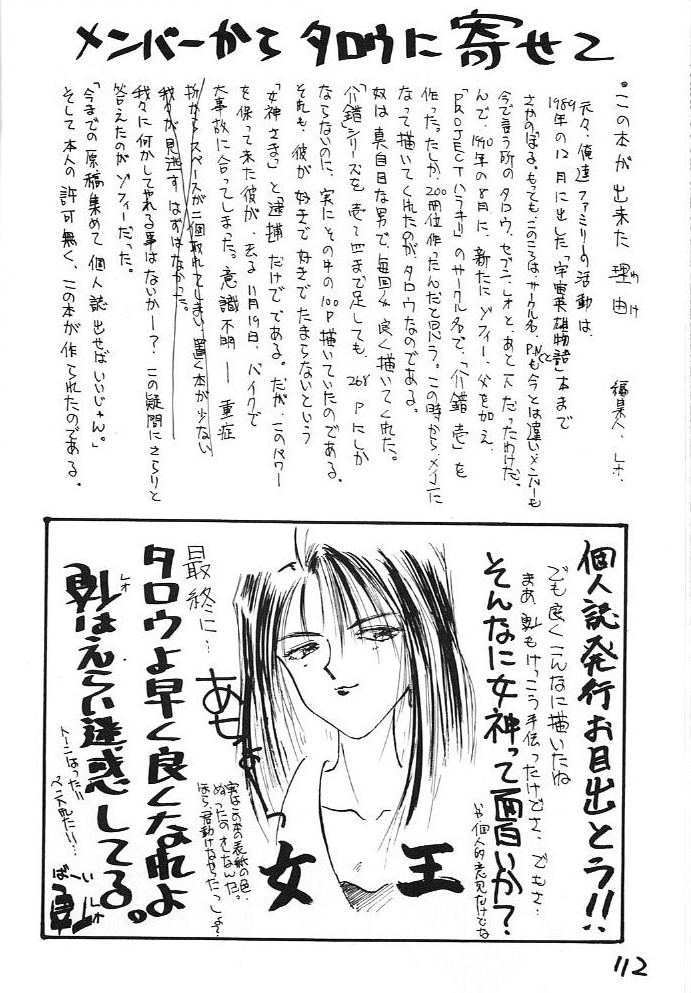 メンバーから タロウに寄せて
。この本が出来た理由
わけ
編集人、レオ.
元々、俺達ファミリーの活動は、
1989年の12月に出した「宇宙英雄物語」本まで
さかのぼる。もっても、このころは、サークル名、P.N.も今とは違いメンバーも
今で言う所のタロウ、セブン、レオと、あと一人だったわけだ。
んで、1990年の8月に、新たにゾフィー、父を加え、
「PROJECTハラキリ」のサークル名で、「介錯 壱」を
作った。たしか、200冊位作ったんだと思う。この時からメインに
なって描いてくれたのが、タロウなのである。
奴は真面目な男で、毎回々良く描いてくれた。
「介錯」シリーズを壱〜四まで足しても、268Pにしか
ならないのに、実にその中の100P描いていたのである。
それも、彼が好きで好きでたまらないという
「女神さま」と「逮捕」だけでである。だが、このパワー
を保って来た彼が、去る11月19日、バイクで
大事故に合ってしまった。意識不明――重症
折からスペースが二個取れてしまい、置く本が少ない
我々が見逃すはずはなかった。
我々に何かしてやれる事はないかー?、この疑問にさらりと
答えたのがゾフィーだった。
「今までの原稿集めて個人誌出せばいいじゃん。」
そして本人の許可無く、この本が作られたのである。
個人誌発行お目出とう!!
でも良くこんなに描いたね
まあ、もけっこう手伝ったけどさ、でもさ…
そんなに女神って面白いか?
いや、個人的意見だけどな
女王
最終に…
あ
タロウよ早く良くなれよ
レオ
はえらい迷惑してる。
トーンはったい!!
ペン入れたい!!…
実はこの本の表紙の色、
ぬったのオレなんだ。
ほら、君動けなかったっしょ?
ばーい
レオ
112